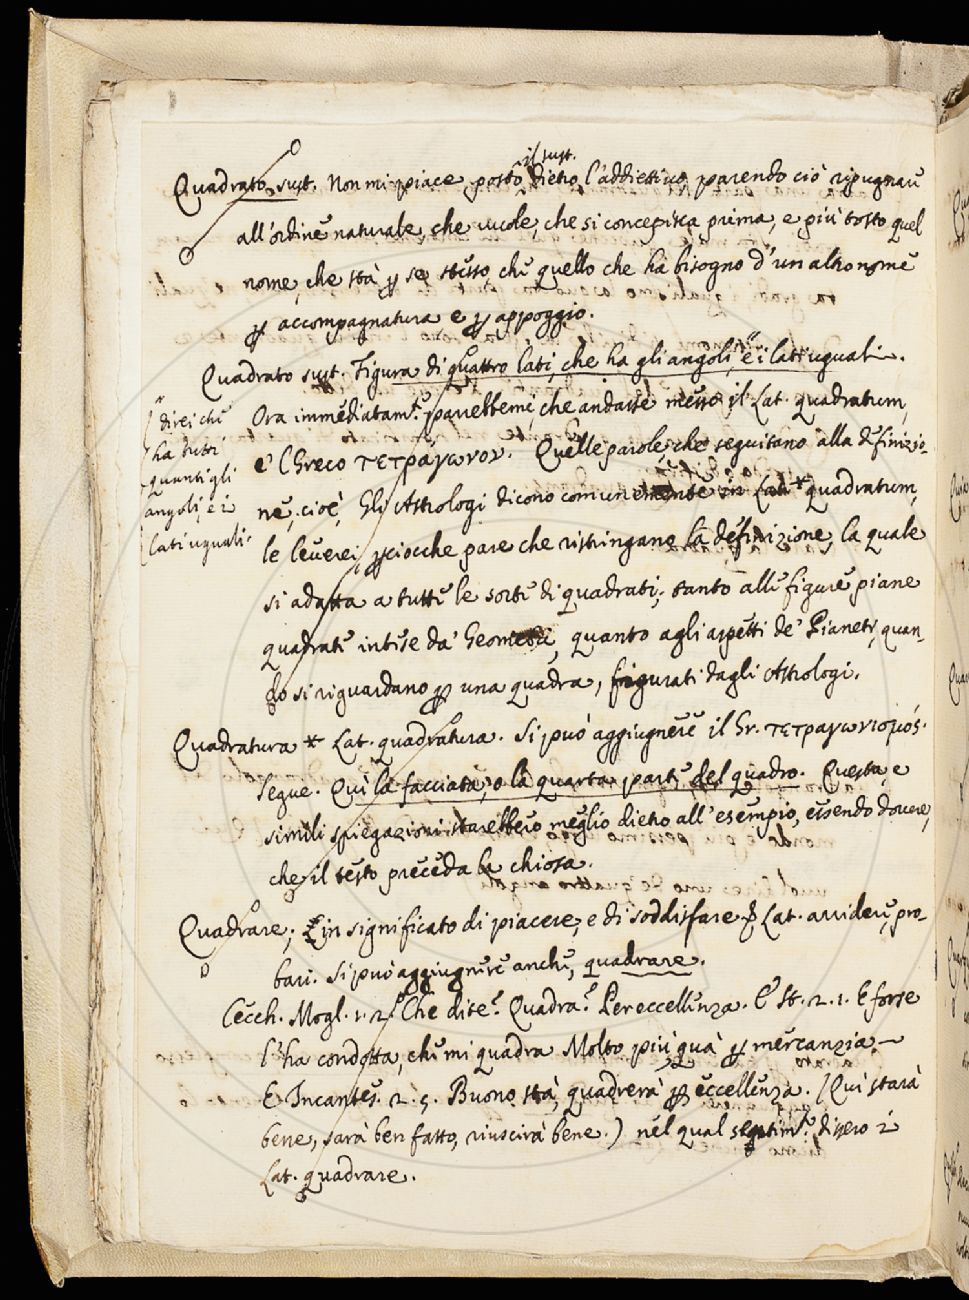 Quadrato, sust. Non mi piace posto il sust. dietro l'addiettivo parendo ciò ripugnare
all'ordine naturale, che vuole, che si concepisca prima, e più tosto quel
nome, che stà ꝑ se stesso, che quello che hà bisogno d'un altro nome
ꝑ accompagnatura e ꝑ appoggio.
Quadrato sust. Figura di quattro lati, che ha gli angoli, " e i lati uguali.
" direi che
ha tutti
quanti gli
angoli, e i
lati uguali.
Ora immediatam.e parrebbemi che andasse messo il Lat. quadratum,
e 'l Greco τετραγωνον. Quelle parole, che seguitano alla definizio-
ne, cioè, Gli Astrologi dicono comunemente in Lat. * quadratum,
le leverei, ꝑciocche pare che ristringano la definizione, la quale
si adatta a tutte le sorte di quadrati, tanto alle figure piane
quadrate intese da' Geometri, quanto agli aspetti de' Pianeti, quan-
do si riguardano ꝑ una quadra, figurati dagli Astrologi.
Quadratura * Lat. quadratura. Si può aggiugnere il Gr. τετραγωνισμός.
Segue. Quì la facciata, o la quarta parte del quadro. Questa, e
simili spiegazioni starebbero meglio dietro all'esempio, essendo dovere,
che il testo preceda la chiosa.
Quadrare, in significato di piacere, e di soddisfare Lat. arridere, pro-
bari. Si può aggiugnere anche, quadrare.
Cecch. Mogl. 1. 2. Che dite? Quadra? Per eccellenza. E St. 2. 1. E forse
l'ha condotta, che mi quadra Molto più quà ꝑ mercanzia.
E Incantes. 2. 5. Buono stà, quadrerà ꝑ eccellenza. (Quì starà
bene, sarà ben fatto, riuscirà bene.) nel qual sentim.o dissero i
Lat. quadrare.